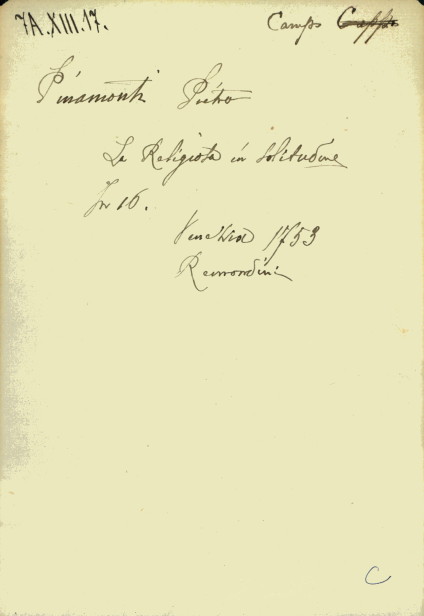 7A.XIII.17.
Camps Capp.
Pinamonti Pietro
La Religiosa in Solitudine
In 16.
Venezia 1753
Remondini
C